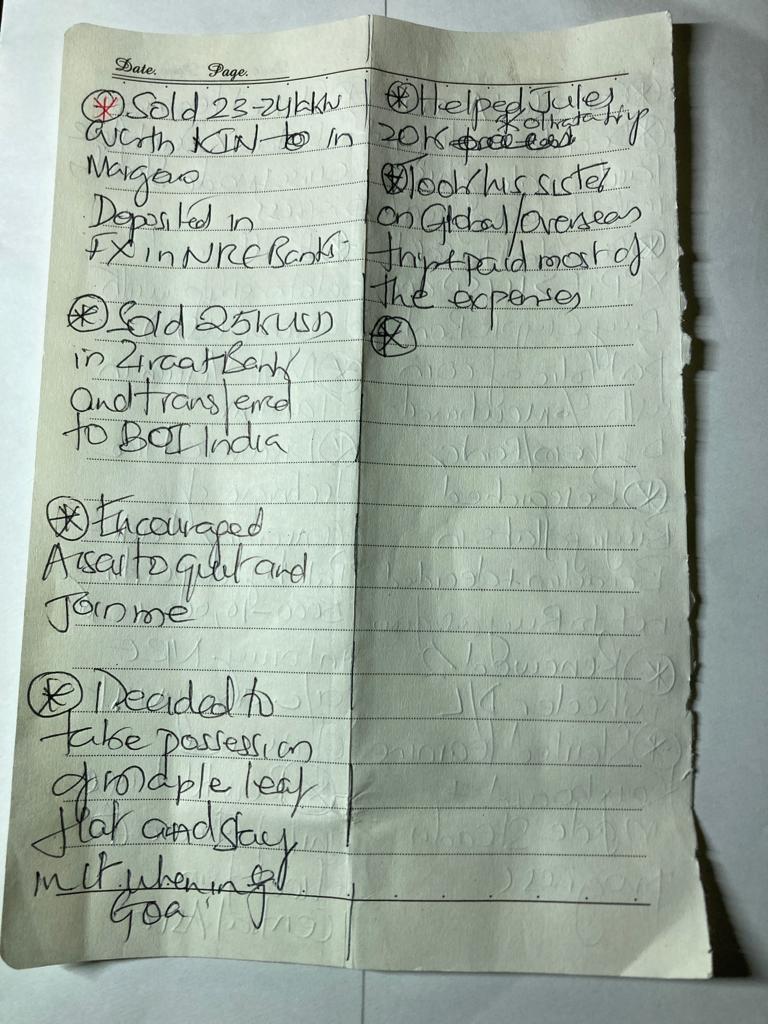 Date. Page.
Sold 23-24k
worth in
Margao
Deposited in
FX in NRE Bank
Sold 25K USD
in Ziraat Bank
and transferred
to BOI India
Encouraged
to quit and
Join me
Decided to
take possession
of maple leaf
flat and stay
in it when in
Goa
Helped Jules
Kolkata trip
20K
Took his sister
on Global/Overseas
trip + paid most of
the expenses